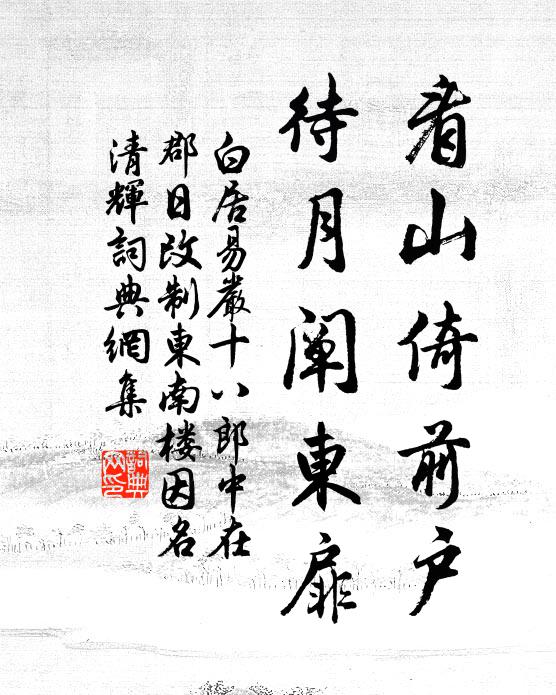 看山倚前户
待月阐東扉
白居易嚴十八郎中在
郡日改制東南楼因名
清輝詞典網集
詞典网印